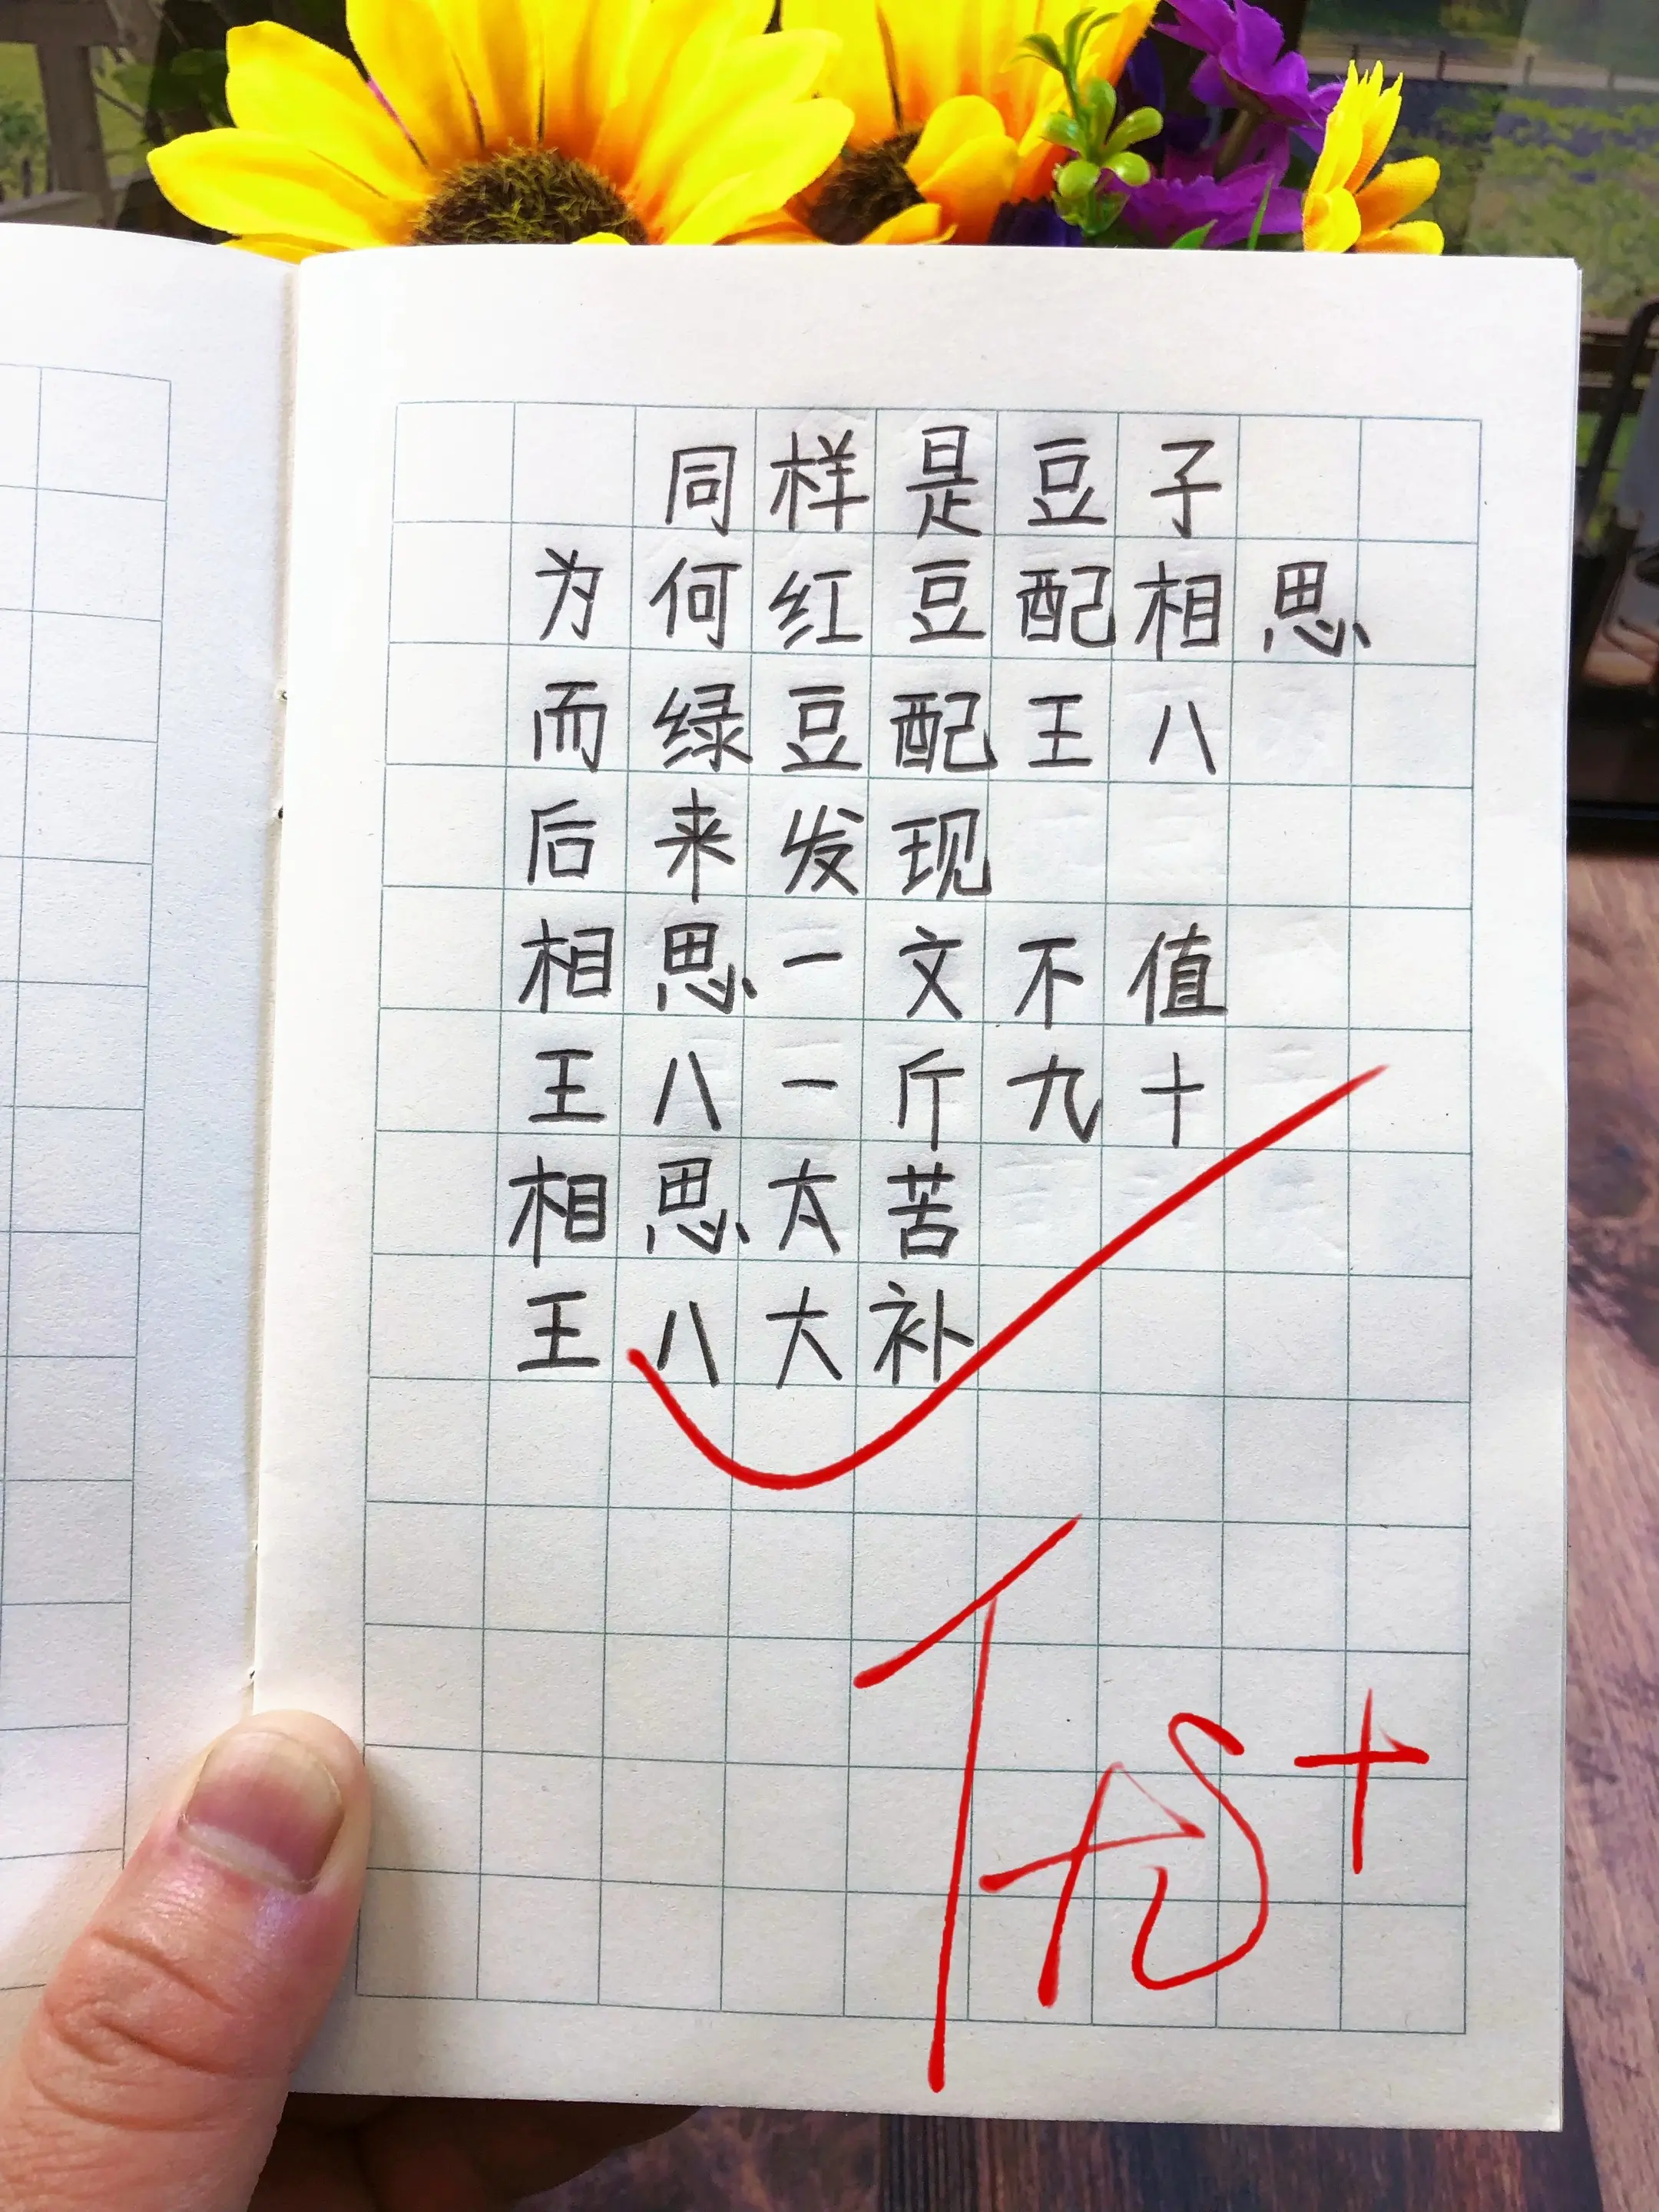 同样是豆子
为何红豆配相思
而绿豆配王八
后来发现
相思一文不值
王八一斤九十
相思太苦
王八大补
优+